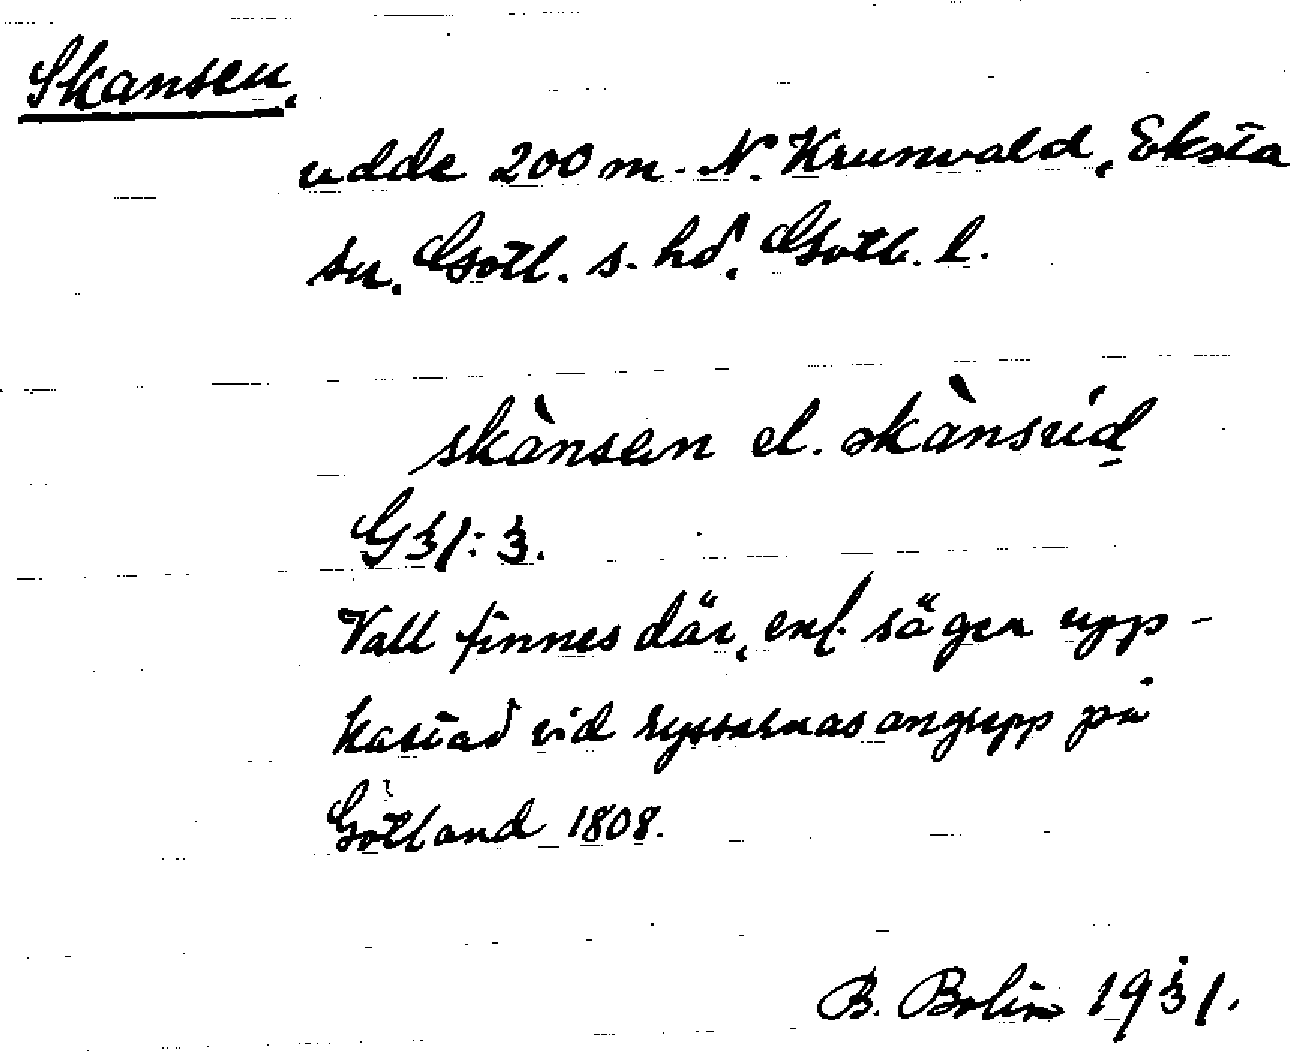 Skansen.
udde 200 m. N. Krunvald, Eksta
sn. Gotl. s. hd. Gotl. l.
skànsen el. skànsxid
G 31:3.
Vall finnes där, enl. sägen upp-
kastad vid ryssarnas angrepp på
Gotland 1808.
B. Bolin 1931.